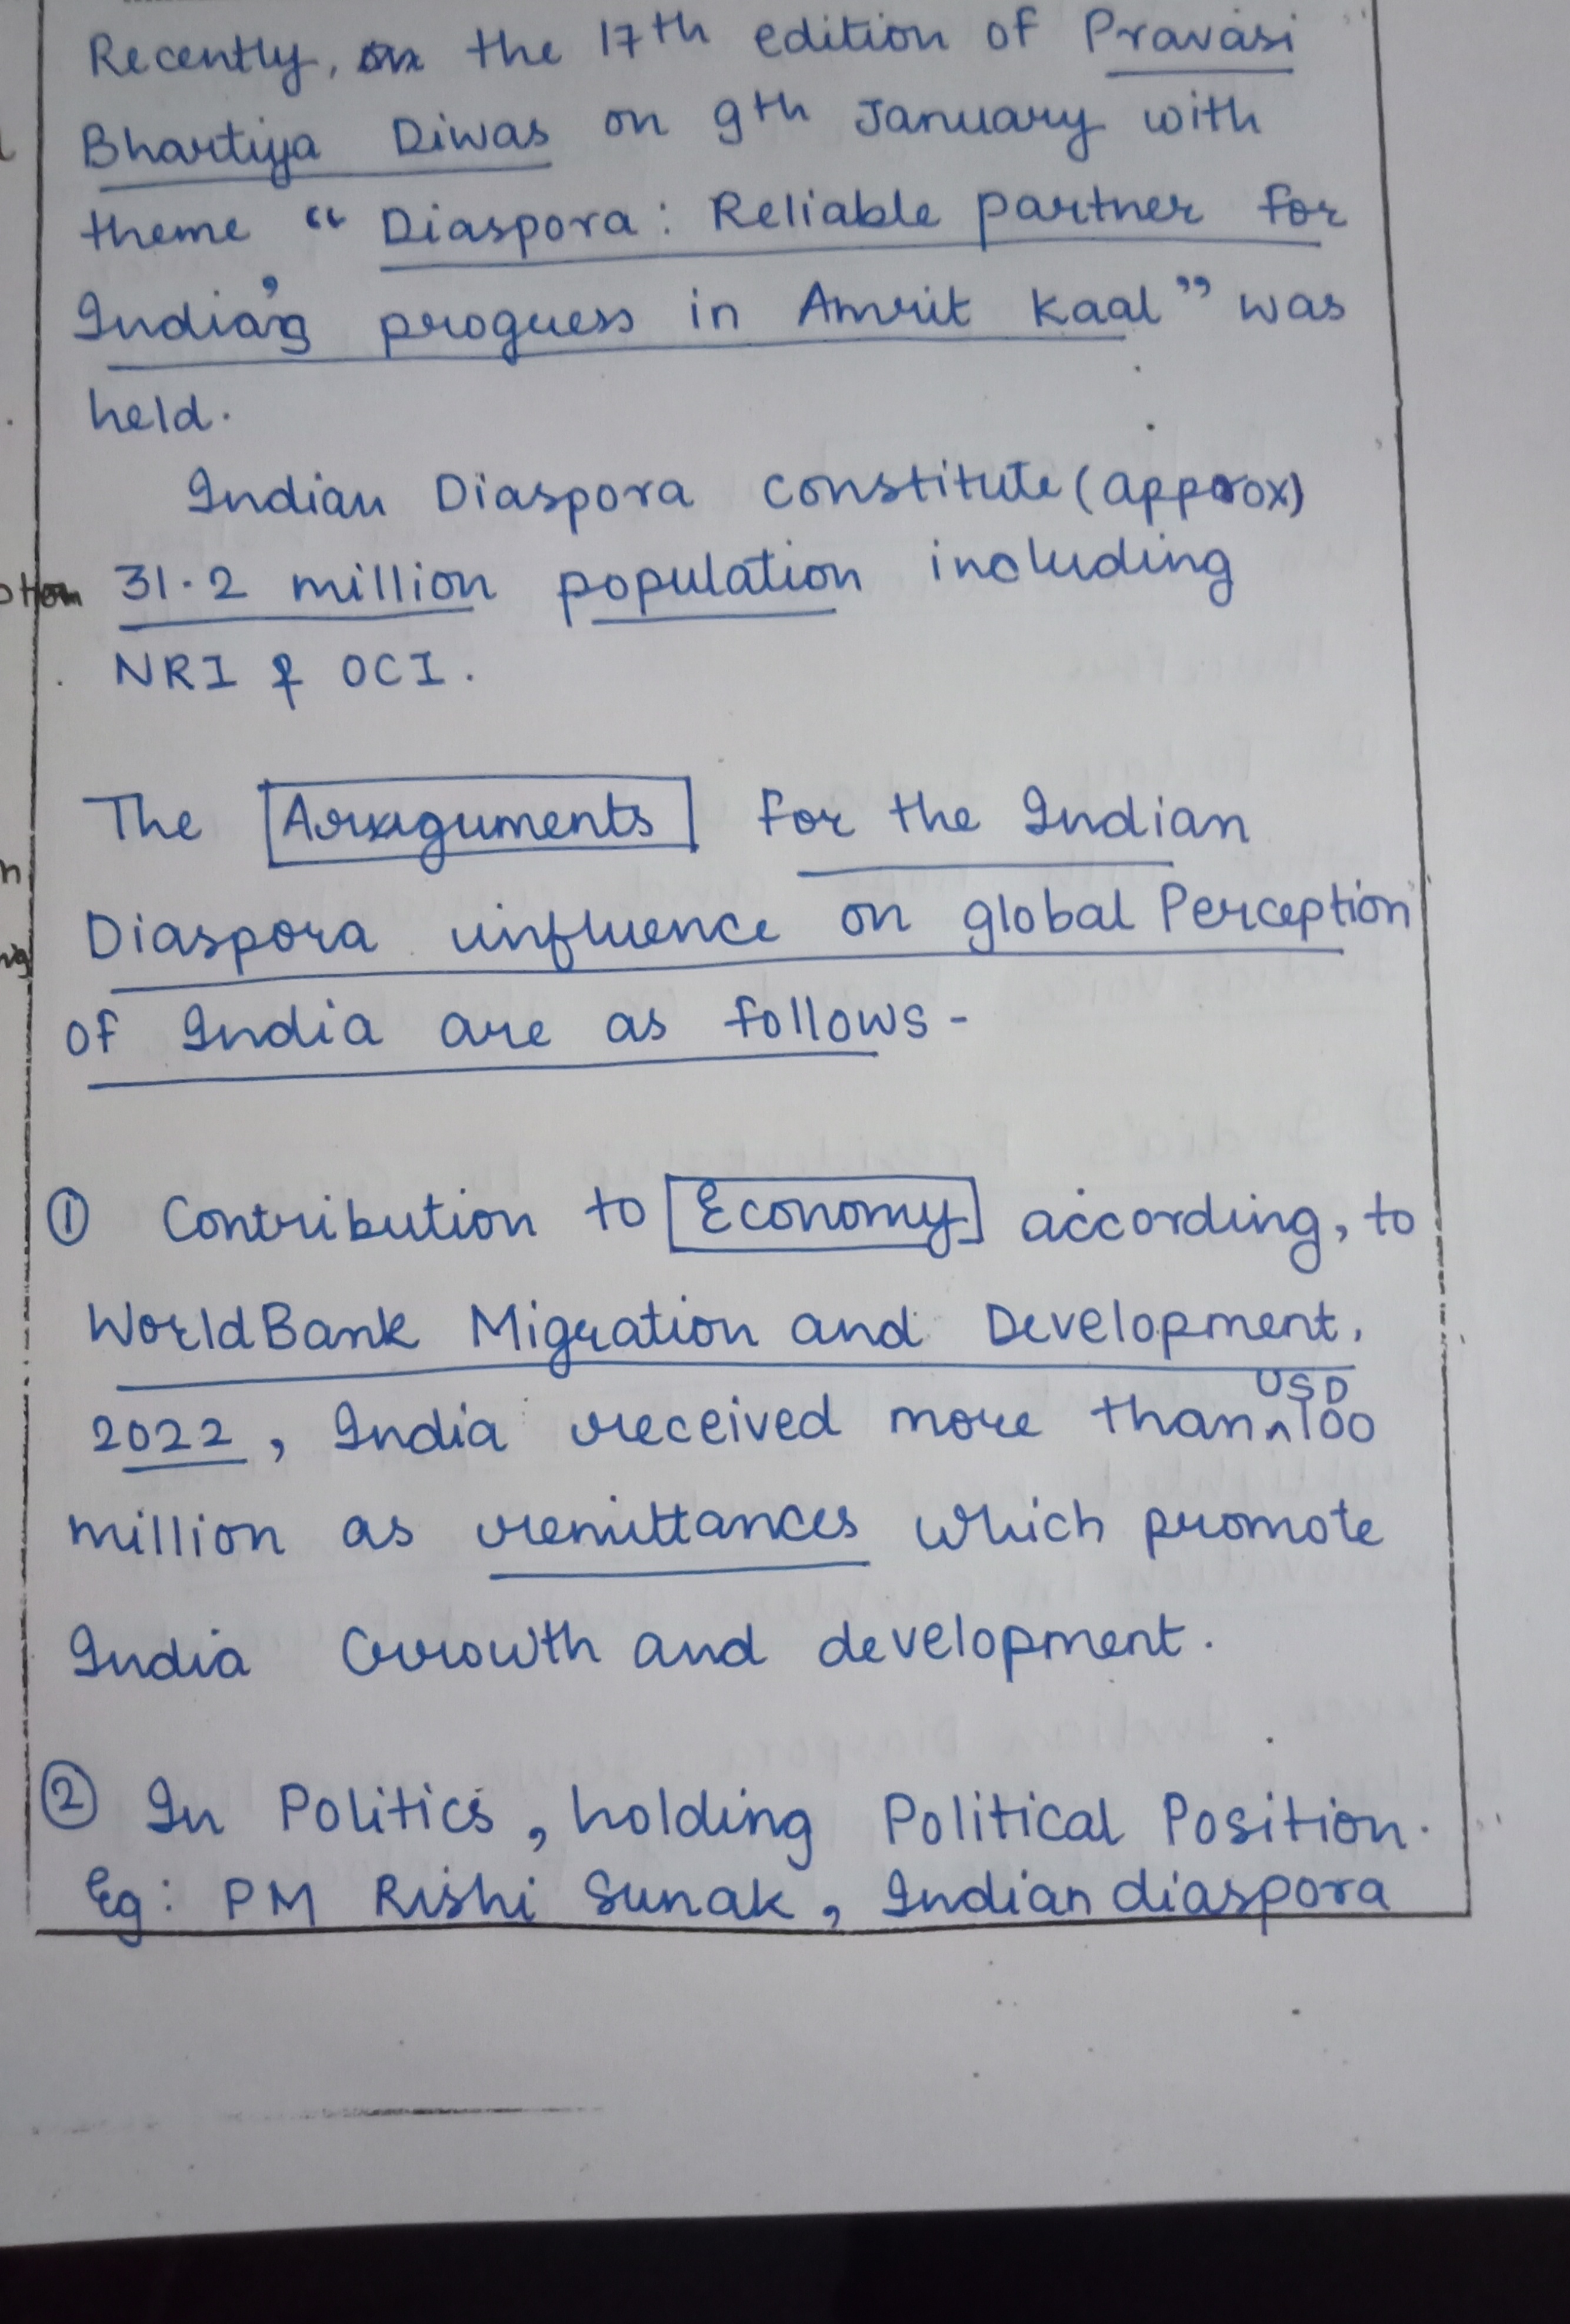 Recently, on the 17th edition of Pravasi
Bhartiya Diwas on 9th January with
theme “ Diaspora : Reliable partner for
India's progress in Amrit Kaal ” was
held.
Indian Diaspora constitute (approx)
31.2 million population including
NRI & OCI.
The Arguments for the Indian
Diaspora influence on global Perception
of India are as follows -
① Contribution to Economy according, to
World Bank Migration and Development,
2022, India received more than USD 100
million as remittances which promote
India Growth and development.
② In Politics, holding Political Position.
Eg: PM Rishi Sunak, Indian diaspora